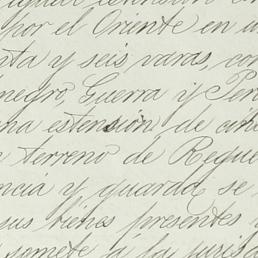 por el Oriente en u
nta y seis varas, con
negro, Guerra y Per
ha estensión de cin
terreno de Regue
ncia y guarda se
sus bienes presentes y
somete á la juris